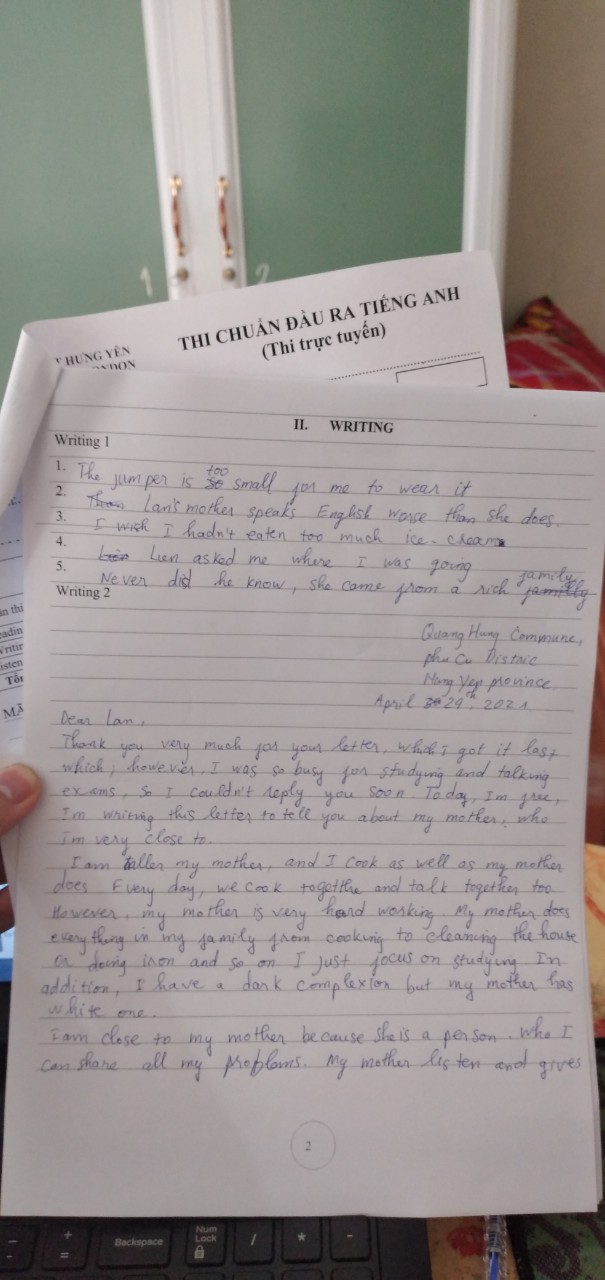 1 2
THI CHUẨN ĐẦU RA TIẾNG ANH
(Thi trực tuyến)
T HƯNG YÊN
ONDON
II. WRITING
Writing 1
1. The jumper is so too small for me to wear it
2. Than Lan's mother speaks English worse than she does.
3. I wish I hadn't eaten too much ice-cream
4. Lien Lien asked me where I was going
5. Never did he know, she came from a rich familly family
Writing 2
Quang Hung Commune,
phu Cu Distric
Hung Yep province
April 30 29th, 2021
Dear Lan,
Thank you very much for your letter, which I got it last
which, however, I was so busy for studying and talking
exams, so I couldn't reply you soon. Today, I'm free,
I'm writing this letter to tell you about my mother, who
I'm very close to.
I am taller my mother, and I cook as well as my mother
does. Every day, we cook togetthe and talk together too
However, my mother is very hard working. My mother does
every thing in my family from cooking to cleaning the house
or doing iron and so on I just focus on studying In
addition, I have a dark complexion but my mother has
white one.
I am close to my mother because she is a person. who I
can share all my problems. My mother listen and gives
2
in thi
eadin
Writin
isten
Tổn
Mã
Backspace
Num
Lock
+
=
/
*
-